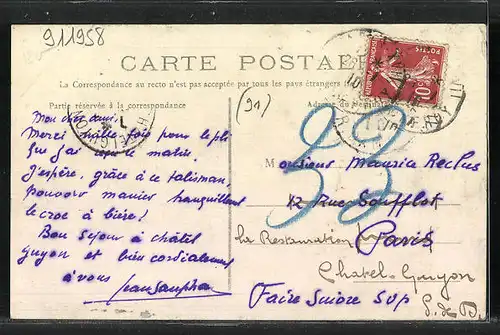 911958
CARTE POSTALE
La Correspondance au recto n'est pas acceptée par tous les pays étrangers
Partie réservée à la correspondance
Adresse du
(91)
POSTES
10
Mon cher ami.
Merci mille fois pour le pli
que j'ai reçu le matin.
J'espère, grâce à ce talisman,
pouvoir manier tranquillement
le croc à bière!
Bon séjour à châtel
guyon et bien cordialement
à vous
33
Monsieur Maurice Reclus
12 Rue Soufflot
Paris
Chatel-Guyon
P. de D.
Faire Suivre SVP